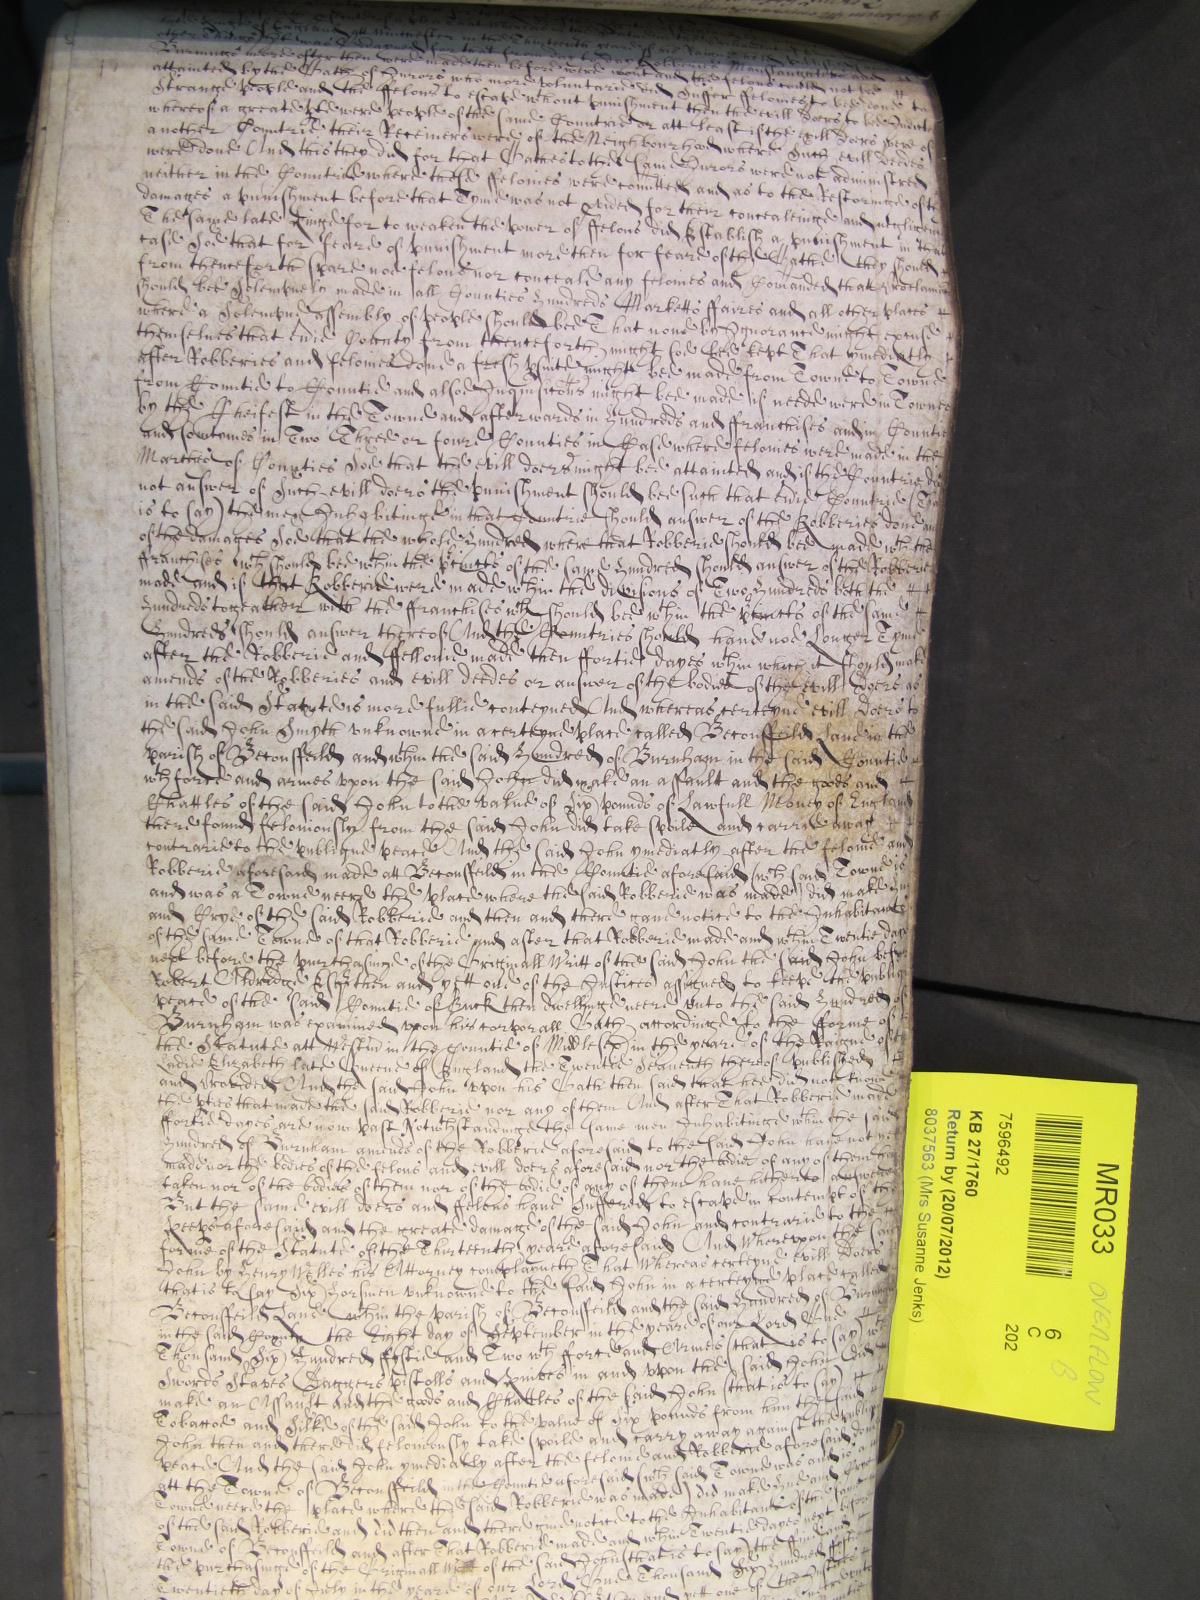 Burnings more often then were made then before were wont and the felons could not bee
attainted by the Oath of Jurors who more voluntarie did suffer felonies to bee done to
Strange people and the ffelons to escape without punishment then the evill doers to bee Indicted
whereof a great pte were people of the same Countrie or att least if the evill doers were of
another Countrie their Receiners were of the Neighbourhood where such evill deedes
were done And this they did for that Oathes to the same Jurors were not administred
neither in the Countrie where those ffelonies were comitted and as to the Restoringe of the
damages a punishment before that Tyme was not vided for their concealeinge and negligence
The same late Kinge for to weaken the power of ffelons did Establish a punishment in that
case Soe that for feare of punishment more then for feare of the Oathe they should
from thenceforth spare noe felons nor conceale any felonies and Comanded that Proclamacon
should bee Solempnely made in all Counties Hundreds Marketts ffaires and all other places
where a Solempne assembly of people should bee That none by Ignorance might excuse
themselues that euie County from thenceforth might soe bee kept That ymediatly
after Robberies and felonies done a fresh psuite might bee made from Towne to Towne
from Countie to Countie and alsoe Inquisitons might bee made if neede were in Townes
by the Cheifest in the Towne and afterwards in Hundreds and ffranchises and in Countie
and sometymes in Two Three or foure Counties in Case where felonies were made in the
Marches of Counties Soe that the evill doers might bee attainted and if the Countrie did
not answer of such evill doers the punishment should bee such that euie Countrie (That
is to say) the men Inhabitinge in that Countrie should answer of the Robberies done and
of the damages Soe that the whole Hundred where that Robberie should bee made wth the
ffranchises wch should bee wthin the Precincts of the same Hundred should answer of the Robberie
made and if that Robberie were made wthin the divisions of Two Hundreds both the
Hundreds togeather with the ffranchises wch should bee wthin the Precincts of the same
Hundreds should answer thereof And the Countries should haue noe Longer Tyme
after the Robberie and ffellonie made then fortie dayes wthin which it should make
amends of the Robberies and evill deedes or answer of the bodies of the evill doers as
in the said Statute is more fullie conteyned And whereas certeyne evill doers to
the said John Smyth vnknowne in a certeyne place called Beconsfeild Lane in the
parish of Beconsfeild and wthin the said Hundred of Burnham in the said Countie
wth force and armes vpon the said John did make an assault and the goods and
Chattles of the said John to the value of Six pounds of Lawfull Money of England
there found feloniously from the said John did take spoile and carry away
contrarie to the publique peace And the said John ymediatly after the felonie and
Robberie aforesaid made att Beconsfeild in the Countie aforesaid (wch said Towne is
and was a Towne neere the place where the said Robberie was made) did make Hue
and Crye of the said Robberie and then and there gaue notice to the Inhabitants
of the same Towne of that Robberie And after that Robberie made and wthin Twentie dayes
next before the purchasinge of the Originall Writt of the said John the said John before
Robert Aldridge Esq then and yett one of the Justices assigned to keepe the publique
peace of the said Countie of Buck then dwellinge neere vnto the said Hundred of
Burnham was examined vpon his corporall Oath accordinge to the fforme of
the Statute att Westm in the Countie of Middlesex in the yeare of the Raigne of the
Ladie Elizabeth late Queene of England the Twentie Seaventh thereof published
and provided And the said John vpon his Oath then said that hee did not knowe
the pties that made the said Robberie nor any of them And after That Robberie made
fortie dayes are now past Notwthstandinge the same men Inhabitinge wthin the said
Hundred of Burnham amends of the Robberie aforesaid to the said John haue not yet
made nor the bodies of the felons and evill doers aforesaid nor the bodies of any of them haue
taken nor of the bodies of them nor of the bodie of any of them haue hitherto answered
But the same evill doers and felons haue Suffered to escape in contempt of the
peeps aforesaid and the greate damage of the said John and contrarie to the
forme of the Statute of the Thirteenth yeare aforesaid And Wherevpon the said
John by Henry Welles his Attorney complayneth That Whereas certeyne evill doers
that is to say Six horsmen vnknowne to the said John in a certeyne place called
Beconsfeild Lane wthin the parish of Beconsfeild and the said Hundred of Burnham
in the said County the Eight day of September in the yeare of our Lord One
Thousand Six Hundred ffiftie and Two wth fforce and Armes (that is to say) wth
Swords Staves Daggers Pistolls and Knives in and vpon the said John did
make an Assault And the goods and Chattles of the said John (that is to say)
Tobaccoe and Silke of the said John to the value of Six pounds from him the said
John then and there did feloniously take spoile and carry away against the publique
peace And the said John ymediatly after the felonie and Robberie aforesaid done
att the Towne of Beconsfeild in the Countie aforesaid (wch said Towne was and is a
Towne neere the place where the said Robberie was made) did make Hue and Crye
of the said Robberie and did then and there giue notice to the Inhabitants of the same
Towne of Beconsfeild and after That Robberie made and wthin Twentie dayes next before
the purchasinge of the Originall Writt of the said John that is to say the
Twentieth day of July in the yeare of our Lord One Thousand Six Hundred
MR033
OVERFLOW
B
6
C
202
7596492
KB 27/1760
Return by (20/07/2012)
8037563 (Mrs Susanne Jenks)